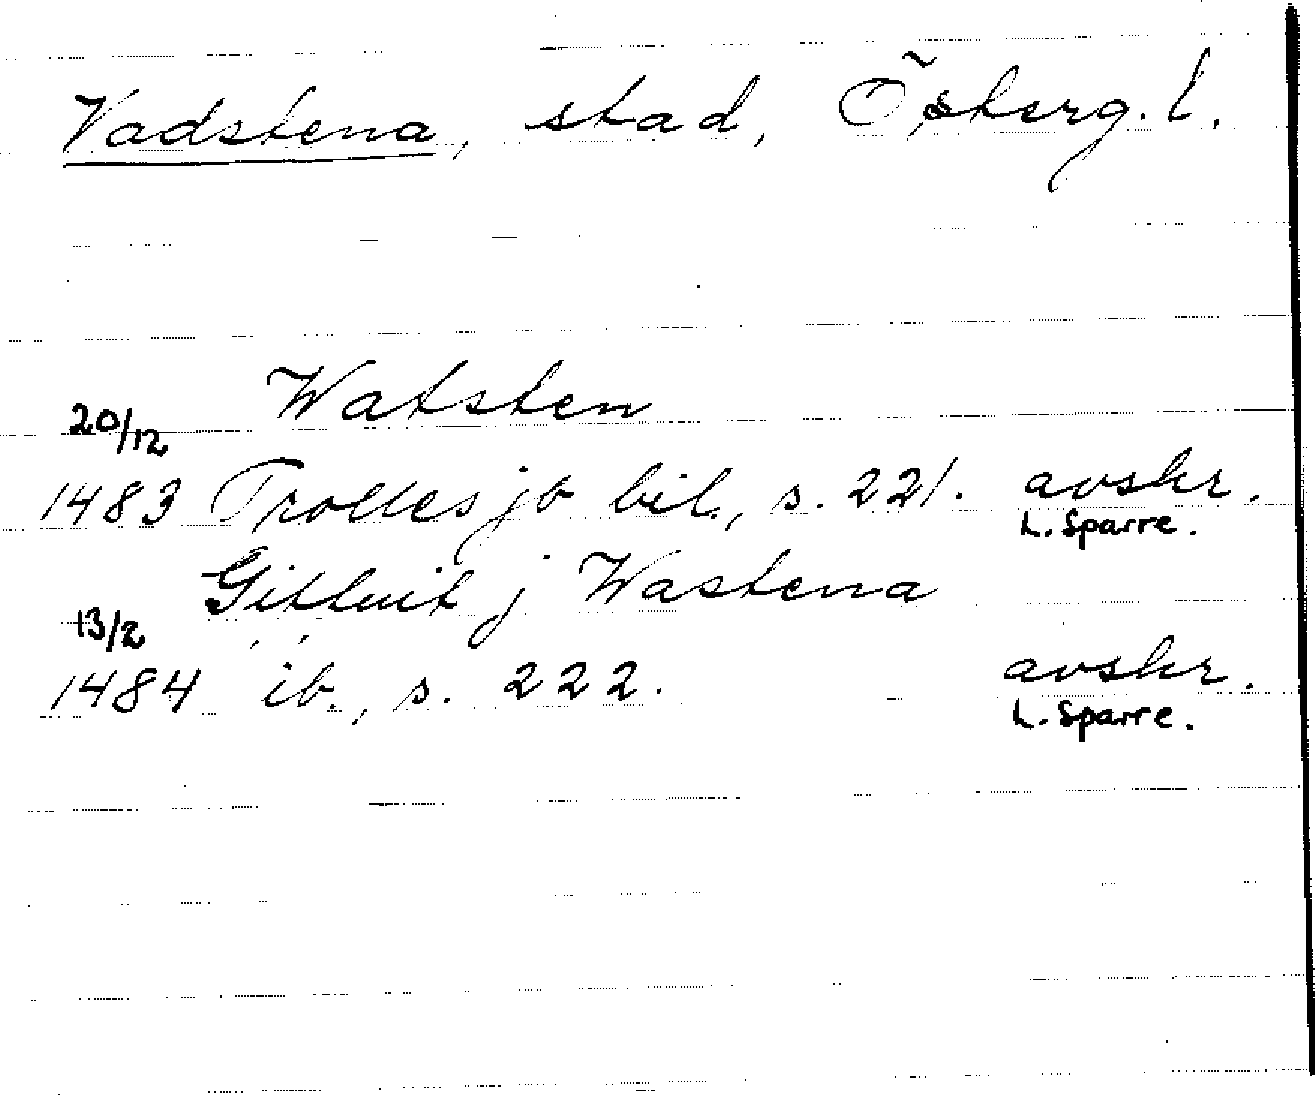 Vadstena, stad, Österg. l.
Watsten
20/12
1483 Trolles jb bil., s. 221. avskr.
L. Sparre.
Gifluit j Wastena
13/2
1484 ib., s. 222. avskr.
L. Sparre.